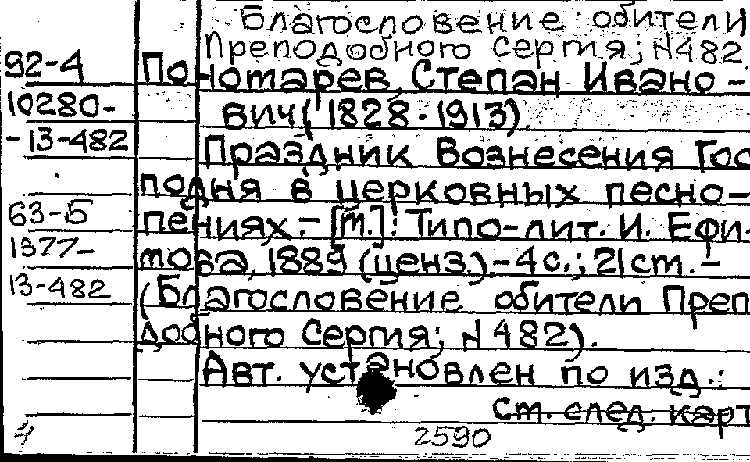 Благословение обители
Преподобного Сергия; N482
92-4 Пономарев, Степан Ивано-
10280- вич (1828-1913)
-13-482 Праздник Вознесения Гос
подня в церковных песно-
63-5 пениях.- [М.]: Типо-лит. И. Ефи-
1377- мова, 1889 (ценз.).-4с.; 21см.-
13-482 (Благословение обители Преп
добного Сергия; N482).
Авт. установлен по изд.:
см. след. карт
4 2590